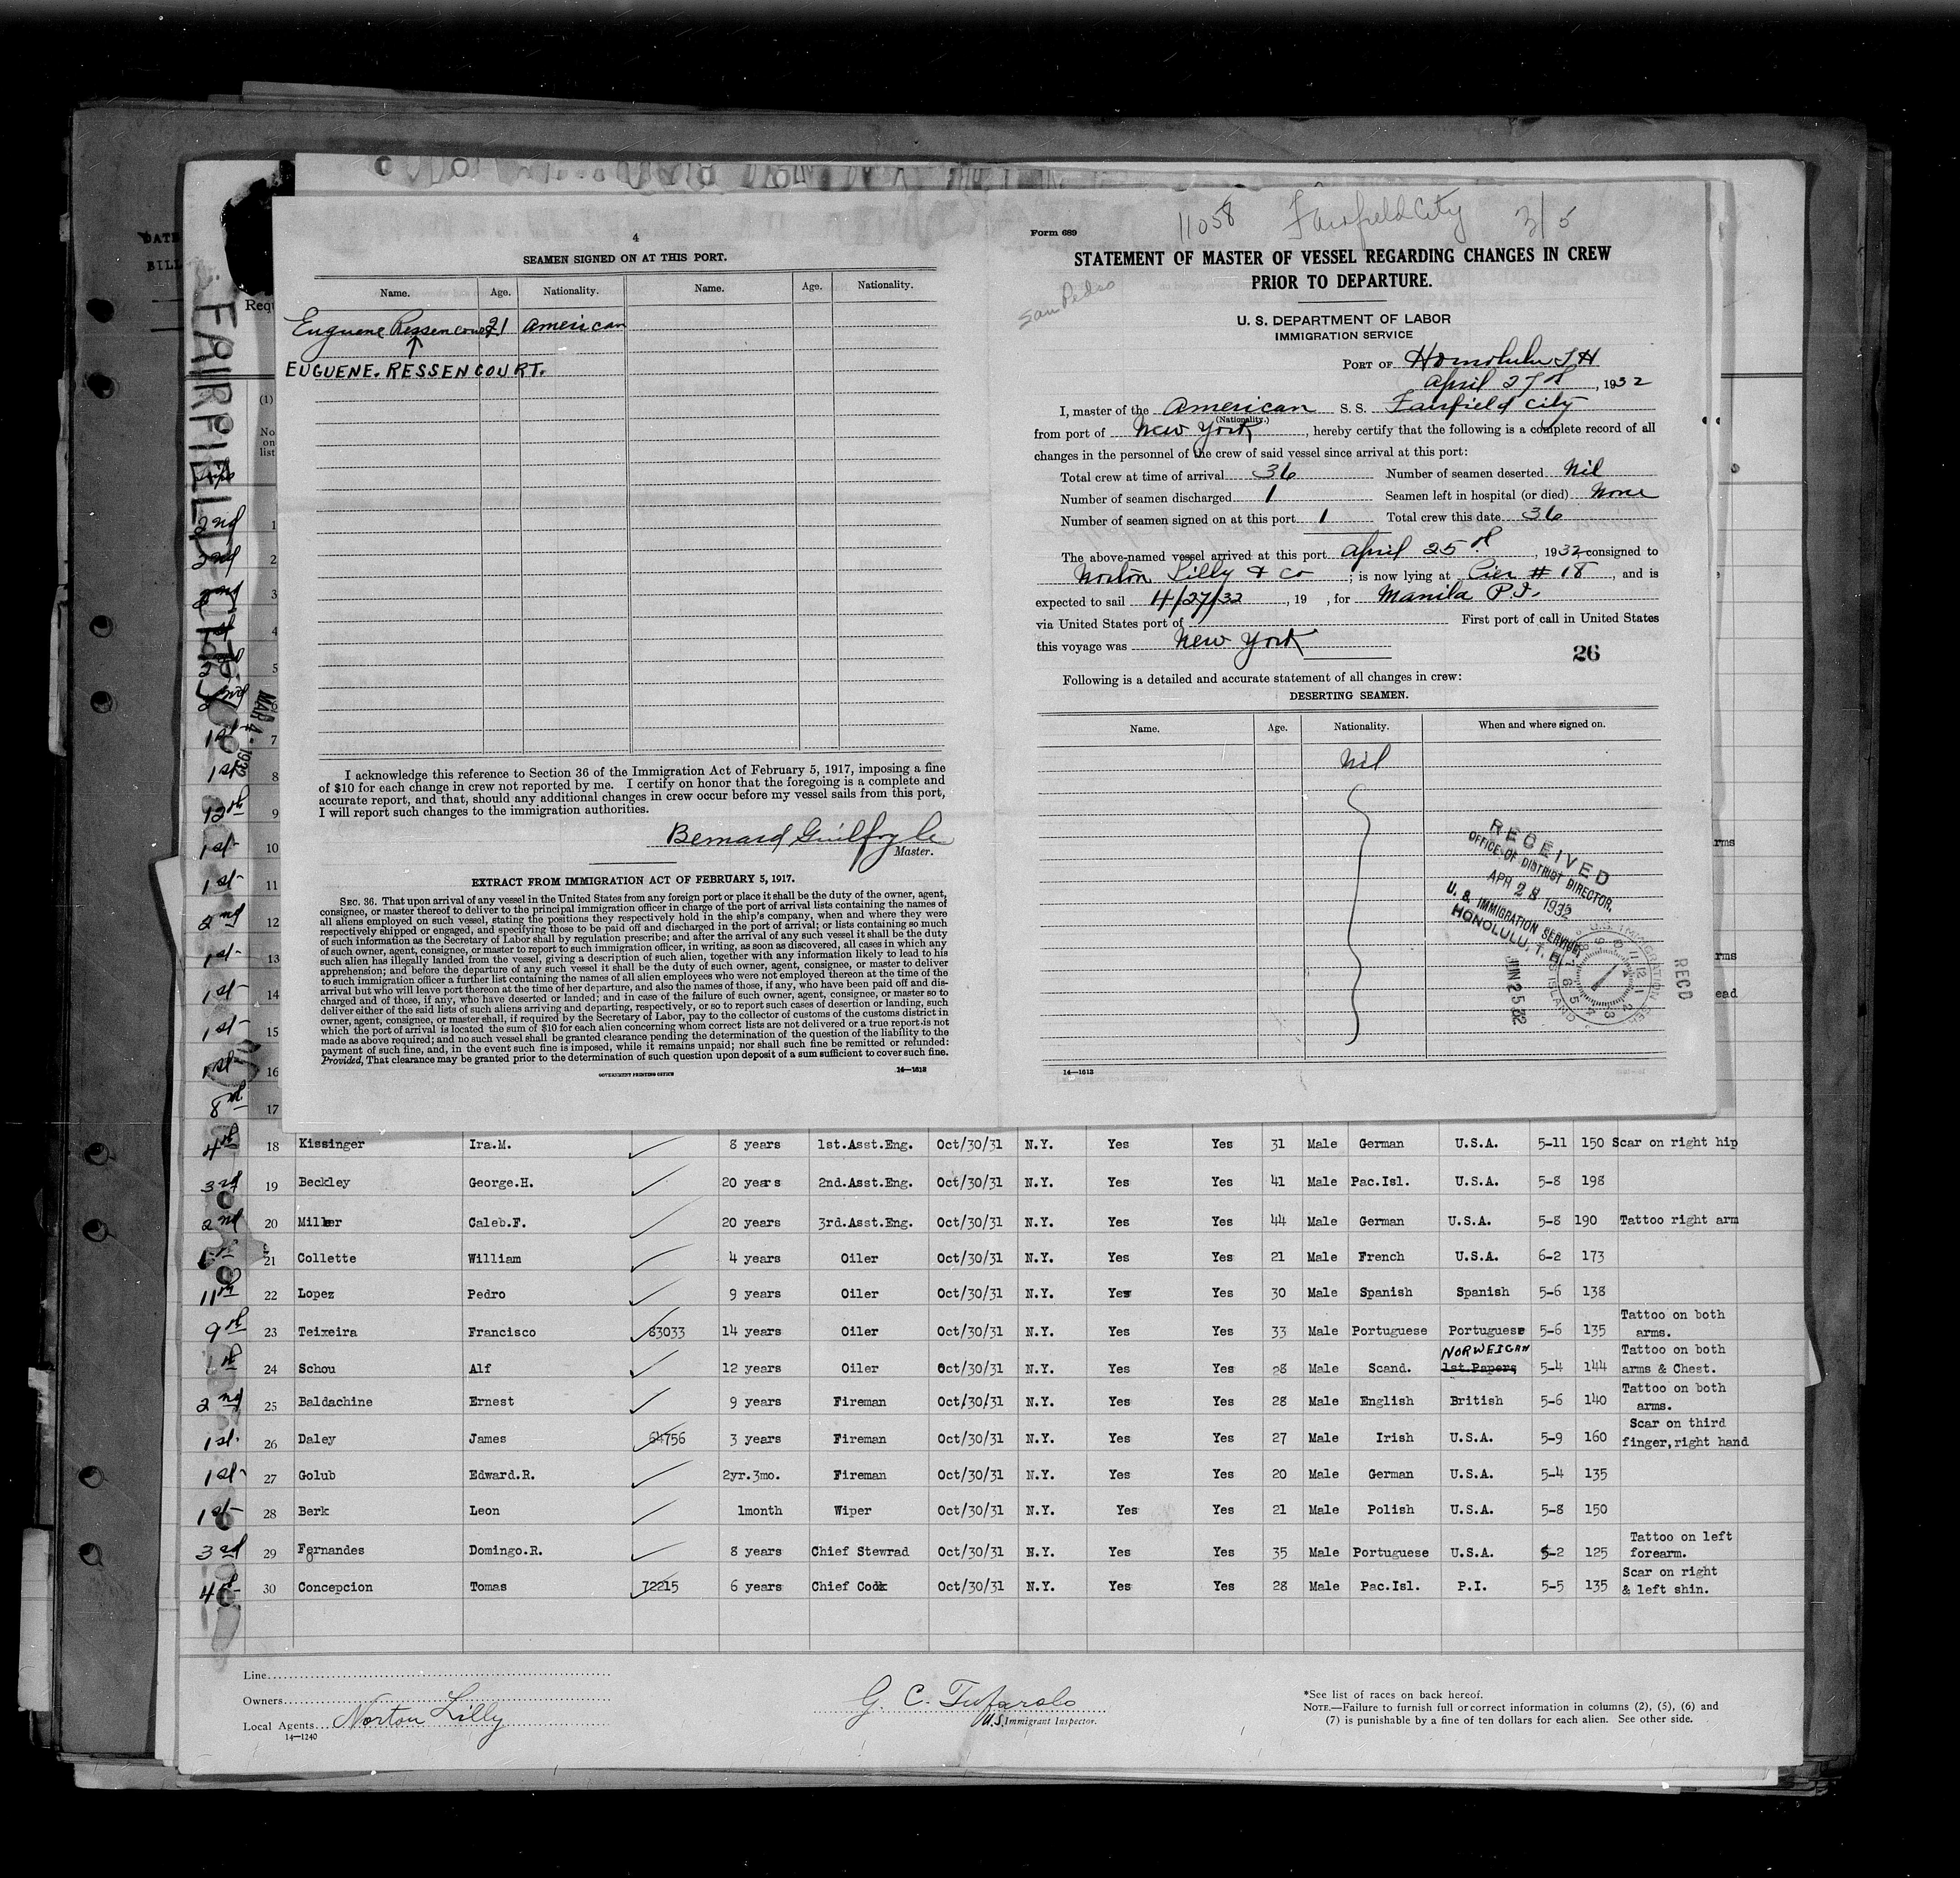 DATE
BILL
FAIRFIELD CITY
MAR 4 - 1932
Requ
(1)
No
on
list
4
SEAMEN SIGNED ON AT THIS PORT.
Name. Age. Nationality. Name. Age. Nationality.
Euguene Ressencourt 21 American
EUGUENE. RESSENCOURT.
I acknowledge this reference to Section 36 of the Immigration Act of February 5, 1917, imposing a fine
of $10 for each change in crew not reported by me. I certify on honor that the foregoing is a complete and
accurate report, and that, should any additional changes in crew occur before my vessel sails from this port,
I will report such changes to the immigration authorities.
Bernard Guilfoyle
Master.
EXTRACT FROM IMMIGRATION ACT OF FEBRUARY 5, 1917.
SEC. 36. That upon arrival of any vessel in the United States from any foreign port or place it shall be the duty of the owner, agent,
consignee, or master thereof to deliver to the principal immigration officer in charge of the port of arrival lists containing the names of
all aliens employed on such vessel, stating the positions they respectively hold in the ship's company, when and where they were
respectively shipped or engaged, and specifying those to be paid off and discharged in the port of arrival; or lists containing so much
of such information as the Secretary of Labor shall by regulation prescribe; and after the arrival of any such vessel it shall be the duty
of such owner, agent, consignee, or master to report to such immigration officer, in writing, as soon as discovered, all cases in which any
such alien has illegally landed from the vessel, giving a description of such alien, together with any information likely to lead to his
apprehension; and before the departure of any such vessel it shall be the duty of such owner, agent, consignee, or master to deliver
to such immigration officer a further list containing the names of all alien employees who were not employed thereon at the time of the
arrival but who will leave port thereon at the time of her departure, and also the names of those, if any, who have been paid off and dis-
charged and of those, if any, who have deserted or landed; and in case of the failure of such owner, agent, consignee, or master so to
deliver either of the said lists of such aliens arriving and departing, respectively, or so to report such cases of desertion or landing, such
owner, agent, consignee, or master shall, if required by the Secretary of Labor, pay to the collector of customs of the customs district in
which the port of arrival is located the sum of $10 for each alien concerning whom correct lists are not delivered or a true report is not
made as above required; and no such vessel shall be granted clearance pending the determination of the question of the liability to the
payment of such fine, and, in the event such fine is imposed, while it remains unpaid; nor shall such fine be remitted or refunded:
Provided, That clearance may be granted prior to the determination of such question upon deposit of a sum sufficient to cover such fine.
GOVERNMENT PRINTING OFFICE 14—1613
11058 Fairfield City 3/5
Form 689
STATEMENT OF MASTER OF VESSEL REGARDING CHANGES IN CREW
PRIOR TO DEPARTURE.
San Pedro
U. S. DEPARTMENT OF LABOR
IMMIGRATION SERVICE
PORT OF Honolulu T.H
April 27th, 1932
I, master of the American S. S. Fairfield City
(Nationality.)
from port of New York, hereby certify that the following is a complete record of all
changes in the personnel of the crew of said vessel since arrival at this port:
Total crew at time of arrival 36 Number of seamen deserted Nil
Number of seamen discharged 1 Seamen left in hospital (or died) None
Number of seamen signed on at this port 1 Total crew this date 36
The above-named vessel arrived at this port April 25th, 1932 consigned to
Norton Lilly & Co; is now lying at Pier # 18, and is
expected to sail 4/27/32, 19 , for Manila P.I.
via United States port of First port of call in United States
this voyage was New York
26
Following is a detailed and accurate statement of all changes in crew:
DESERTING SEAMEN.
Name. Age. Nationality. When and where signed on.
Nil
RECEIVED
OFFICE OF DISTRICT DIRECTOR.
APR 28 1932
U. S. IMMIGRATION SERVICE,
HONOLULU, T. H.
JUN 25 32
REC'D
14—1613
2nd 1
2nd 2
2nd 3
1st 4
2nd 5
2nd 6
1st 7
1st 8
12th 9
1st 10 rms
1st 11
2nd 12
1st 13 rms
1st 14 ead
1st 15
1st 16
8th 17
4th 18 Kissinger Ira.M. 8 years 1st.Asst.Eng. Oct/30/31 N.Y. Yes Yes 31 Male German U.S.A. 5-11 150 Scar on right hip
3rd 19 Beckley George.H. 20 years 2nd.Asst.Eng. Oct/30/31 N.Y. Yes Yes 41 Male Pac.Isl. U.S.A. 5-8 198
2nd 20 Miller Caleb.F. 20 years 3rd.Asst.Eng. Oct/30/31 N.Y. Yes Yes 44 Male German U.S.A. 5-8 190 Tattoo right arm
21 Collette William 4 years Oiler Oct/30/31 N.Y. Yes Yes 21 Male French U.S.A. 6-2 173
11th 22 Lopez Pedro 9 years Oiler Oct/30/31 N.Y. Yes Yes 30 Male Spanish Spanish 5-6 138
9th 23 Teixeira Francisco 83033 14 years Oiler Oct/30/31 N.Y. Yes Yes 33 Male Portuguese Portuguese 5-6 135 Tattoo on both
arms.
NORWEIGAN
24 Schou Alf 12 years Oiler Oct/30/31 N.Y. Yes Yes 28 Male Scand. 1st.Papers 5-4 144 Tattoo on both
arms & Chest.
2nd 25 Baldachine Ernest 9 years Fireman Oct/30/31 N.Y. Yes Yes 28 Male English British 5-6 140 Tattoo on both
arms.
1st. 26 Daley James 64756 3 years Fireman Oct/30/31 N.Y. Yes Yes 27 Male Irish U.S.A. 5-9 160 Scar on third
finger,right hand
1st 27 Golub Edward.R. 2yr.3mo. Fireman Oct/30/31 N.Y. Yes Yes 20 Male German U.S.A. 5-4 135
1st 28 Berk Leon 1month Wiper Oct/30/31 N.Y. Yes Yes 21 Male Polish U.S.A. 5-8 150
3rd 29 Fernandes Domingo.R. 8 years Chief Stewrad Oct/30/31 N.Y. Yes Yes 35 Male Portuguese U.S.A. 5-2 125 Tattoo on left
forearm.
4th 30 Concepcion Tomas 72215 6 years Chief Cook Oct/30/31 N.Y. Yes Yes 28 Male Pac.Isl. P.I. 5-5 135 Scar on right
& left shin.
Line
Owners
Local Agents Norton Lilly
14—1240
G. C. Tufarolo
U.S. Immigrant Inspector.
*See list of races on back hereof.
NOTE.—Failure to furnish full or correct information in columns (2), (5), (6) and
(7) is punishable by a fine of ten dollars for each alien. See other side.